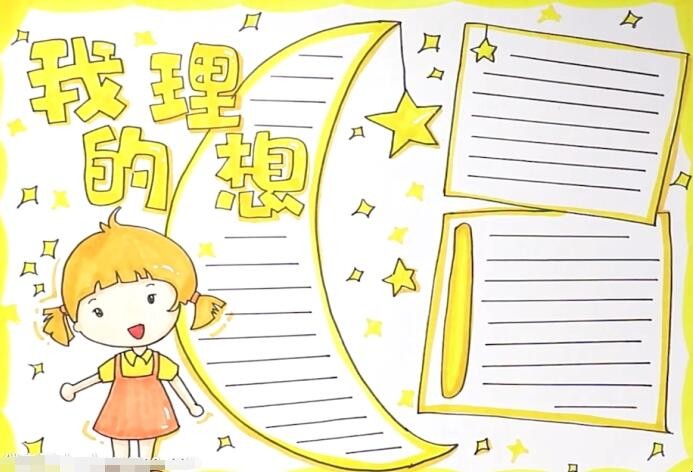 我的理想